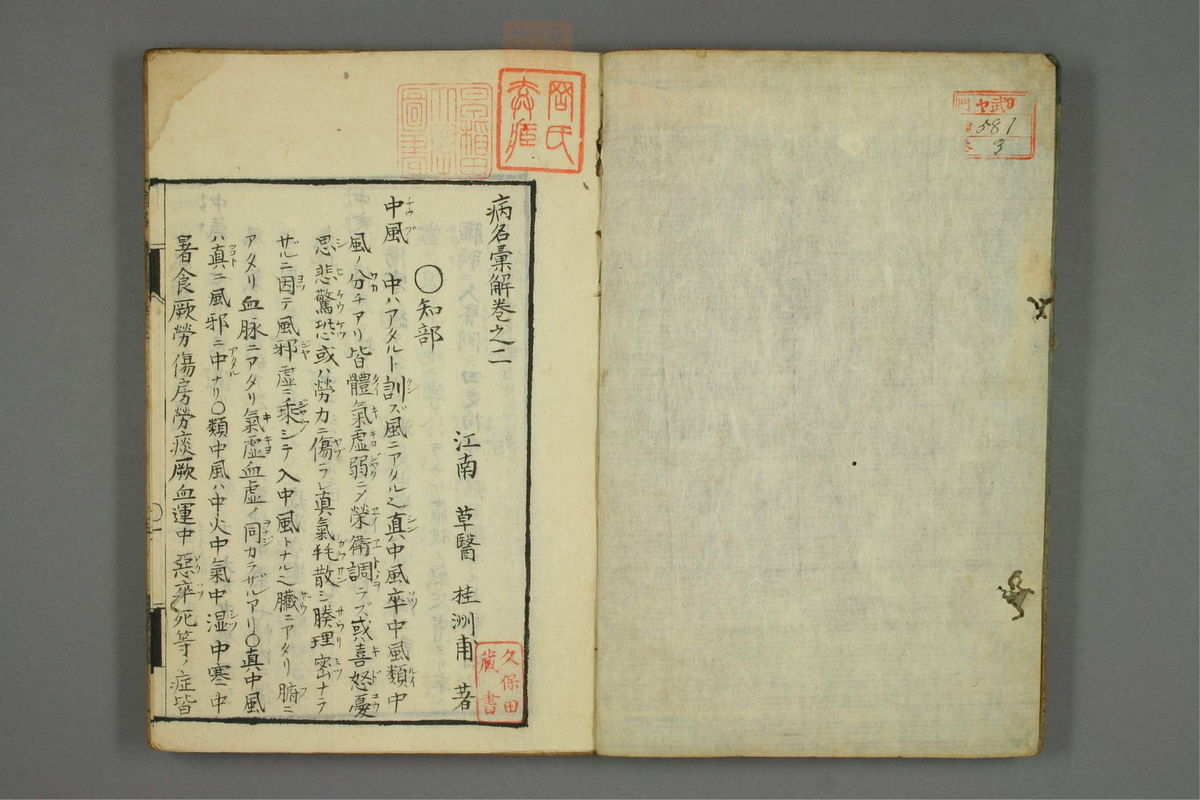 ヤ武
581
3
岡氏
病名彙解巻之二
江南 草醫 桂洲甫 著
久保田
蔵書
〇知部
中風 中ハアタルト訓ズ風ニアタル也真中風卒中風類中
風ノ分チアリ皆體氣虚弱ニメ榮衛調ラズ或喜怒憂
思悲驚恐或ハ勞力ニ傷ラレ真氣耗散シ腠理密ナラ
ザルニ因テ風邪虚ニ乘シテ入中風トナル也臓ニアタリ腑ニ
アタリ血脉ニアタリ氣虚血虚ノ同カラザルアリ〇真中風
ハ真ニ風邪ニ中ナリ〇類中風ハ中火中氣中湿中寒中
暑食厥勞傷房勞痰厥血運中惡卒死等ノ症皆